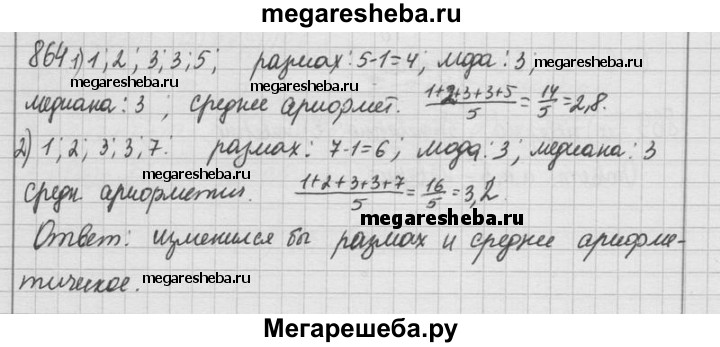 megaresheba.ru
864 1) 1; 2; 3; 3; 5; размах: 5-1=4; мода: 3;
megaresheba.ru megaresheba.ru
медиана: 3; среднее арифмет. (1+2+3+3+5)/5 = 14/5 = 2,8.
2) 1; 2; 3; 3; 7. размах: 7-1=6; мода: 3; медиана: 3
средн арифметич. (1+2+3+3+7)/5 = 16/5 = 3,2.
megaresheba.ru
Ответ: изменился бы размах и среднее арифме-
тическое. megaresheba.ru megaresheba.ru
Мегарешеба.ру